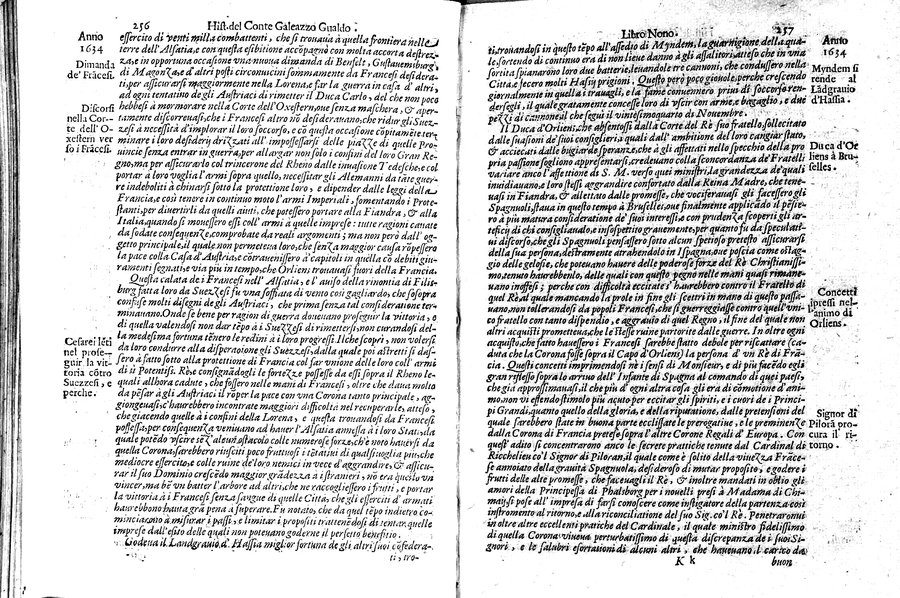 256 Hist. del Conte Galeazzo Gualdo
Anno
1634
Dimanda
de' Frãcesi.
Discorsi
nella Cor-
te dell' O-
xestern ver
so i Frãcesi.
Cesarei lẽti
nel prose-
guir la vit-
toria cõtro
Suezzesi, e
perche.
essercito di venti milla combattenti, che si trouaua à quella frontiera nelle
terre dell'Alsatia, e con questa esibitione accõpagnò con molta accorta destrez-
za, e in opportuna occasione vna nuoua dimanda di Benfelt, Gustauemburg,
di Magonza, e d'altri posti circonuicini sommamente da Francesi desidera-
ti, per assicurarsi maggiormente nella Lorena, e far la guerra in casa d'altri,
ad ogni instigatione de gli Austriaci di rimetter il Duca Carlo, del che non poco
hebbesi à mormorare nella Corte dell'Oxestern, oue senza maschera, & aper-
tamente discorreuasi, che i Francesi altro nõ desiderauano, che ridur gli Suez-
zesi à necessità d'implorar il loro soccorso, e cõ questa occasione cõpitamẽte ter-
minare i loro desiderij drizzati all'impossessarsi delle piazze di quelle Pro-
uincie senza entrar in guerra, per allargar non solo i confini del loro Gran Re-
gno, ma per assicurarlo col trincerone del Rheno dalle inuasioni Tedesche, e col
portar à loro voglia l'armi sopra quello, necessitar gli Alemanni da tãte guer-
re indeboliti à chinarsi sotto la protettione loro, e dipender dalle leggi della
Francia, e così tenere in continuo moto l'armi Imperiali, fomentando i Prote-
stanti, per diuertirli da quelli aiuti, che potessero portare alla Fiandra, & alla
Italia, quando si mouessero essi coll'armi à quelle imprese: tutte ragioni cauate
da sodate consequenze, comprobate da reali argomenti; ma non però dall'og-
getto principale, il quale non permetteua loro, che senza maggior causa rõpessero
la pace colla Casa d'Austria, e cõtrauenissero à' capitoli in quella cõ debiti giu-
ramenti segnati, e via più in tempo, che Orliens trouauasi fuori della Francia.
Questa calata de i Francesi nell'Alsatia, e l'auiso della rinontia di Filis-
burg fatta loro da Suezzesi fù vna soffiata di vento così gagliardo, che sosopra
confuse molti disegni de gli Austriaci, che prima senza tal consideratione ter-
minauano. Onde se bene per ragion di guerra doueuano proseguir la vittoria, e
di quella valendosi non dar tẽpo à i Suezzesi di rimettersi, non curandosi del-
la medesima fortuna tẽnero le redini à i loro progressi. Il che scoprì, non volersi
da loro condurre alla disperatione gli Suezzesi, dalla quale poi astretti si das-
sero à fatto sotto alla protettione di Francia col far vnione delle loro coll'armi
di sì Potentiss. Rè, e consignãdogli le fortezze possesse da essi sopra il Rheno le-
quali allhora cadute, che fossero nelle mani di Francesi, oltre che daua molto
da pẽsar à gli Austriaci il rõper la pace con vna Corona tanto principale, ag-
giongeuasi, c'haurebbero incontrate maggiori difficoltà nel recuperarle, atteso,
che giacendo quelle à i confini della Lorena, e questa trouandosi da Francesi
possessa, per consequenza veniuano ad hauer l'Alsatia annessa à i loro Stati, dal-
la quale potẽdo vscire sẽz'alcun'ostacolo colle numerose forze, ch'è noto hauersi da
quella Corona, sarebbero riusciti poco fruttuosi i tẽtatiui di qualsiuoglia più, che
mediocre essercito, e colle ruine de' loro nemici in vece d'aggrandire, & assicu-
rare il suo Dominio crescẽdo maggior grãdezza à i stranieri, nõ era quello vn
vincer, ma bẽ vn batter l'arbore ad altri, che ne raccogliessero i frutti, e portar
la vittoria à i Francesi senza sangue di quelle Città, che gli esserciti d'armati
haurebbono hauuta grã pena à superare. Fù notato, che da quel tẽpo indietro co-
minciarono à misurar i passi, e limitar i propositi trattenẽdosi di tentar quelle
imprese dall'esito delle quali non poteuano goderne il perfetto benefitio.
Godeua il Landgrauio d'Hassia miglior fortuna de gli altri suoi cõfedera-
ti, tro-
Libro Nono. 257
Anno
1634
Myndem si
rende al
Lãdgrauio
d'Hassia.
Duca d'Or
liens à Bru-
selles.
Concetti
ipressi nel-
l'animo di
Orliens.
Signor di
Pilorã pro-
cura il ri-
torno.
ti, trouandosi in questo tẽpo all'assedio di Myndem, la guarnigione della qua-
le, sortendo di continuo era di non lieue danno à gli assalitori, atteso che in vna
sortita spianarono loro due batterie, leuandole tre cannoni, che condussero nella
Città, e fecero molti Hassij prigioni. Questo però poco gioueuole, perche crescendo
giornalmente in quella i trauagli, e la fame conuennero priui di soccorso ren-
dersegli, il quale gratamente concesse loro di vscir con arme, e bagaglio, e due
pezzi di cannone, al che seguì il vintesimoquarto di Nouembre.
Il Duca d'Orliens, che absentossi dalla Corte del Rè suo fratello, sollecitato
dalle suasioni de' suoi consiglieri, quali dall'ambitione del loro cangiar stato,
& acciecati dalle bugiarde speranze, che à gli affettati nello specchio della pro
pria passione sogliono appresentarsi, credeuano colla sconcordanza de' Fratelli
variare anco l'affettione di S. M. verso quei ministri, la grandezza de' quali
inuidiauano, e loro stessi aggrandire confortato dalla Reina Madre, che tene-
uasi in Fiandra, & allettato dalle promesse, che vociferauasi gli facessero gli
Spagnuoli, staua in questo tempo à Bruselles, oue finalmente applicādo il pẽsie-
ro à più matura consideratione de' suoi interessi, e con prudenza scoperti gli ar-
teficij di chi consigliaualo, e insospettito grauemente, per quanto fù da speculati-
ui discorso, che gli Spagnuoli pensassero sotto alcun spetioso pretesto assicurarsi
della sua persona, destramente atrahendolo in Ispagna, oue poscia come ostag-
gio delle gelosie, che poteuano hauere delle poderose forze del Rè Christianissi-
mo, tenuto haurebbenlo, delle quali con questo pegno nelle mani quasi rimane-
uano inoffesi; perche con difficoltà eccitate s'haurebbero contro il Fratello di
quel Rè, al quale mancando la prole in fine gli scettri in mano di questo passa-
uano, non tollerandosi da popoli Francesi, che si guerreggiasse contro quell'vni-
co fratello con tanto dispendio, e aggrauio di quel Regno, il fine del quale non
altri acquisti prometteua, che le stesse ruine partorite dalle guerre. In oltre ogni
acquisto, che fatto hauessero i Francesi sarebbe stato debole per riscattare (ca-
duta che la Corona fosse sopra il Capo d'Orliens) la persona d'vn Rè di Frã-
cia. Questi concetti imprimendosi nè i sensi di Monsieur, e di più facẽdo egli
gran riflesso sopra lo arriuo dell'Infante di Spagna al comando di quei paesi,
che già approssimauasi, il che più di ogni altra cosa gli era di cõmotione d'ani-
mo, non vi essendo stimolo più acuto per eccitar gli spiriti, e i cuori de i Princi-
pi Grandi, quanto quello della gloria, e della riputatione, dalle pretensioni del
quale sarebbero state in buona parte ecclissate le prerogatiue, e le preminenze
dalla Corona di Francia pretese sopra l'altre Corone Regali d'Europa. Con
quest'adito si concentrarono anco le secrete pratiche tenute dal Cardinal di
Ricchelieu co'l Signor di Piloran, il quale come è solito della viuezza Frãce-
se annoiato della grauità Spagnuola, desideroso di mutar proposito, e godere i
frutti delle alte promesse, che faceuagli il Rè, & inoltre mandati in oblio gli
amori della Principessa di Phalsborg per i nouelli presi à Madama di Chi-
mai, si pose all'impresa di farsi conoscere come instigatore della partenza, così
instromento al ritorno, e alla riconciliatione del suo Sig. co'l Rè. Penetraronui
in oltre altre eccellenti pratiche del Cardinale, il quale ministro fidelissimo
di quella Corona viueua perturbatissimo di questa discrepanza de i suoi Si-
gnori, e le salubri esortationi di alcuni altri, che haueuano il carico da
K k buon